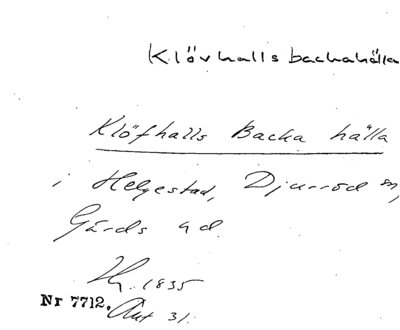 Klövhallsbackahälla
Klöfhalls Backa hälla
i Helgestad, Djurröd sn,
Gärds hd.
Hy. 1835
Nr 7712. Akt 31.